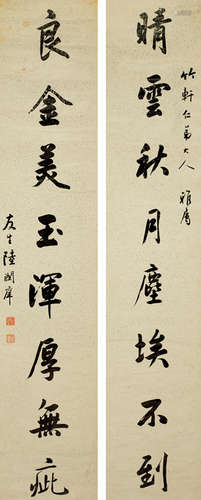 竹軒仁弟大人 雅屬
晴雲秋月塵埃不到
良金美玉渾厚無疵
友生陸潤庠